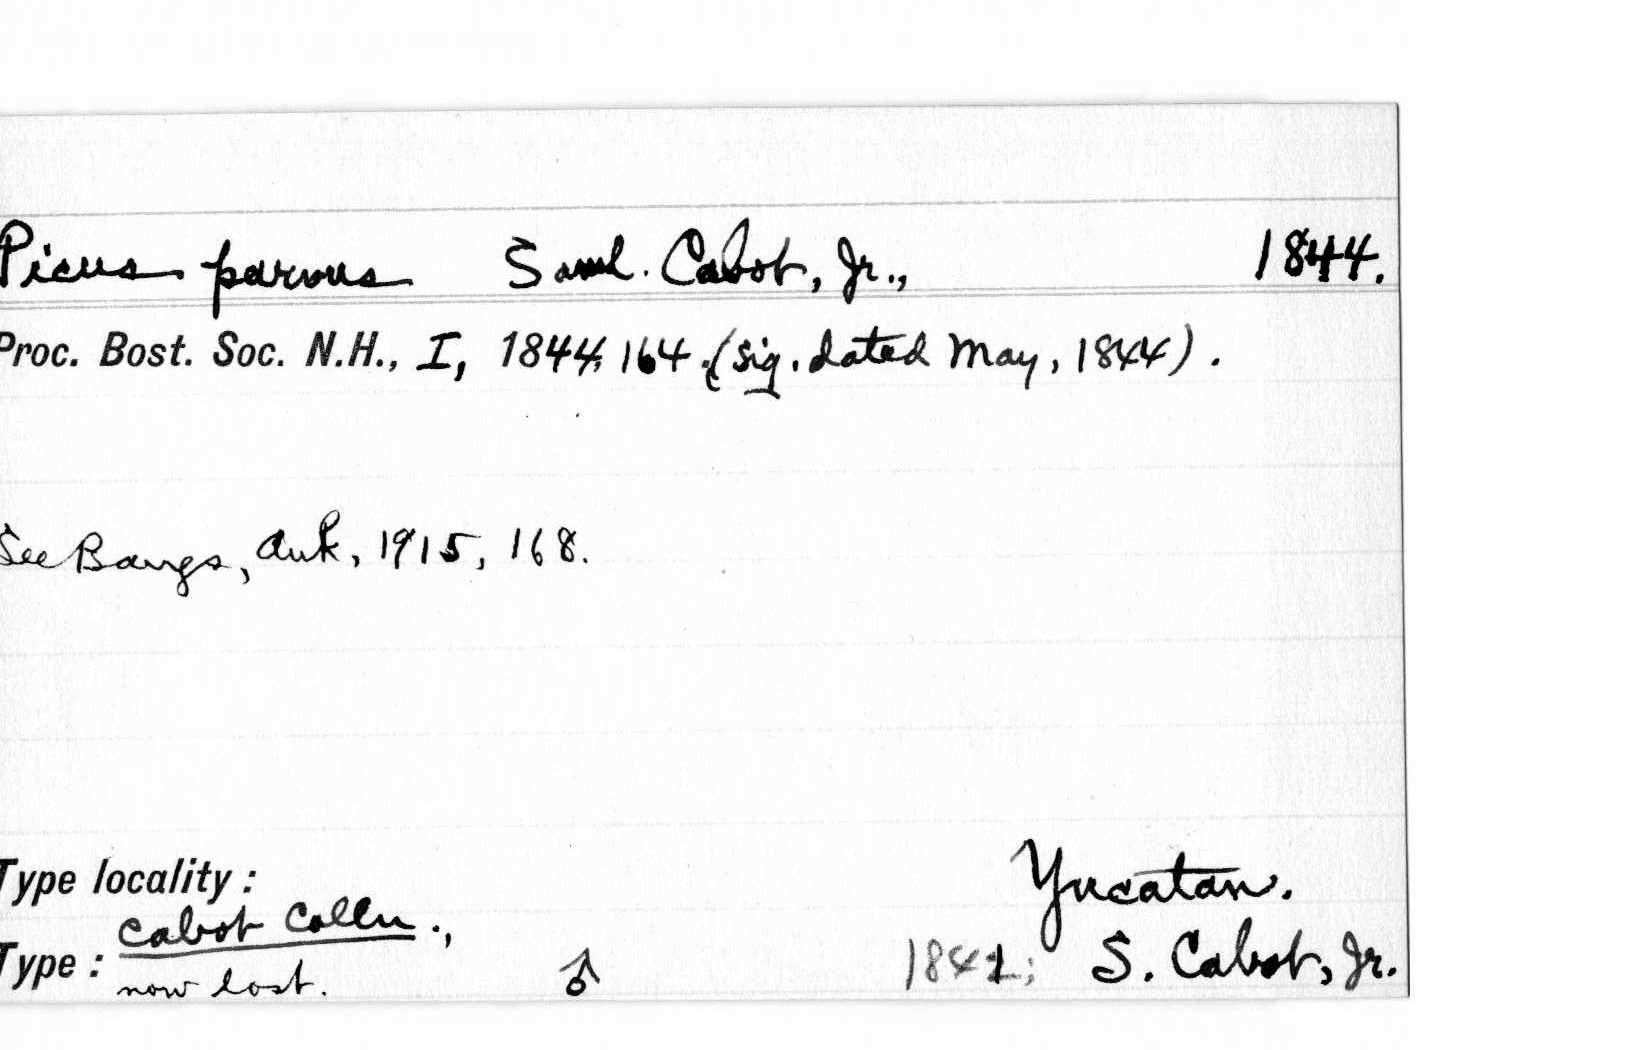 Picus parvus Saml. Cabot, Jr., 1844.
Proc. Bost. Soc. N.H., I, 1844, 164. (sig. dated May, 1844).
See Bangs, Auk, 1915, 168.
Type locality: Yucatan.
Type: Cabot Colln., ♂ S. Cabot, Jr.
now lost.